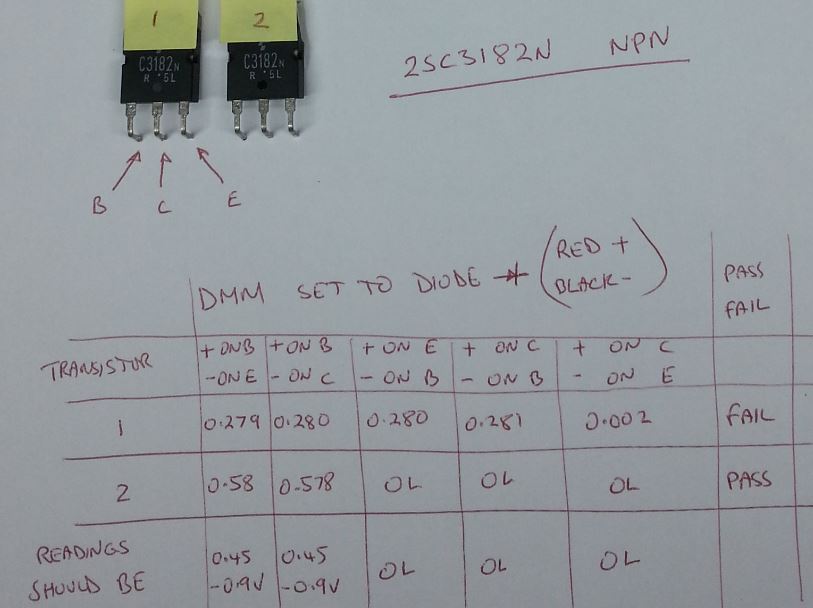 1 2
C3182N
R 5L
C3182N
R 5L
2SC3182N NPN
B C E
DMM SET TO DIODE (RED + BLACK -)
PASS
FAIL
TRANSISTOR
+ ON B
- ON E
+ ON B
- ON C
+ ON E
- ON B
+ ON C
- ON B
+ ON C
- ON E
1 0.279 0.280 0.280 0.281 0.002 FAIL
2 0.58 0.578 OL OL OL PASS
READINGS
SHOULD BE
0.45
-0.9V
0.45
-0.9V
OL OL OL